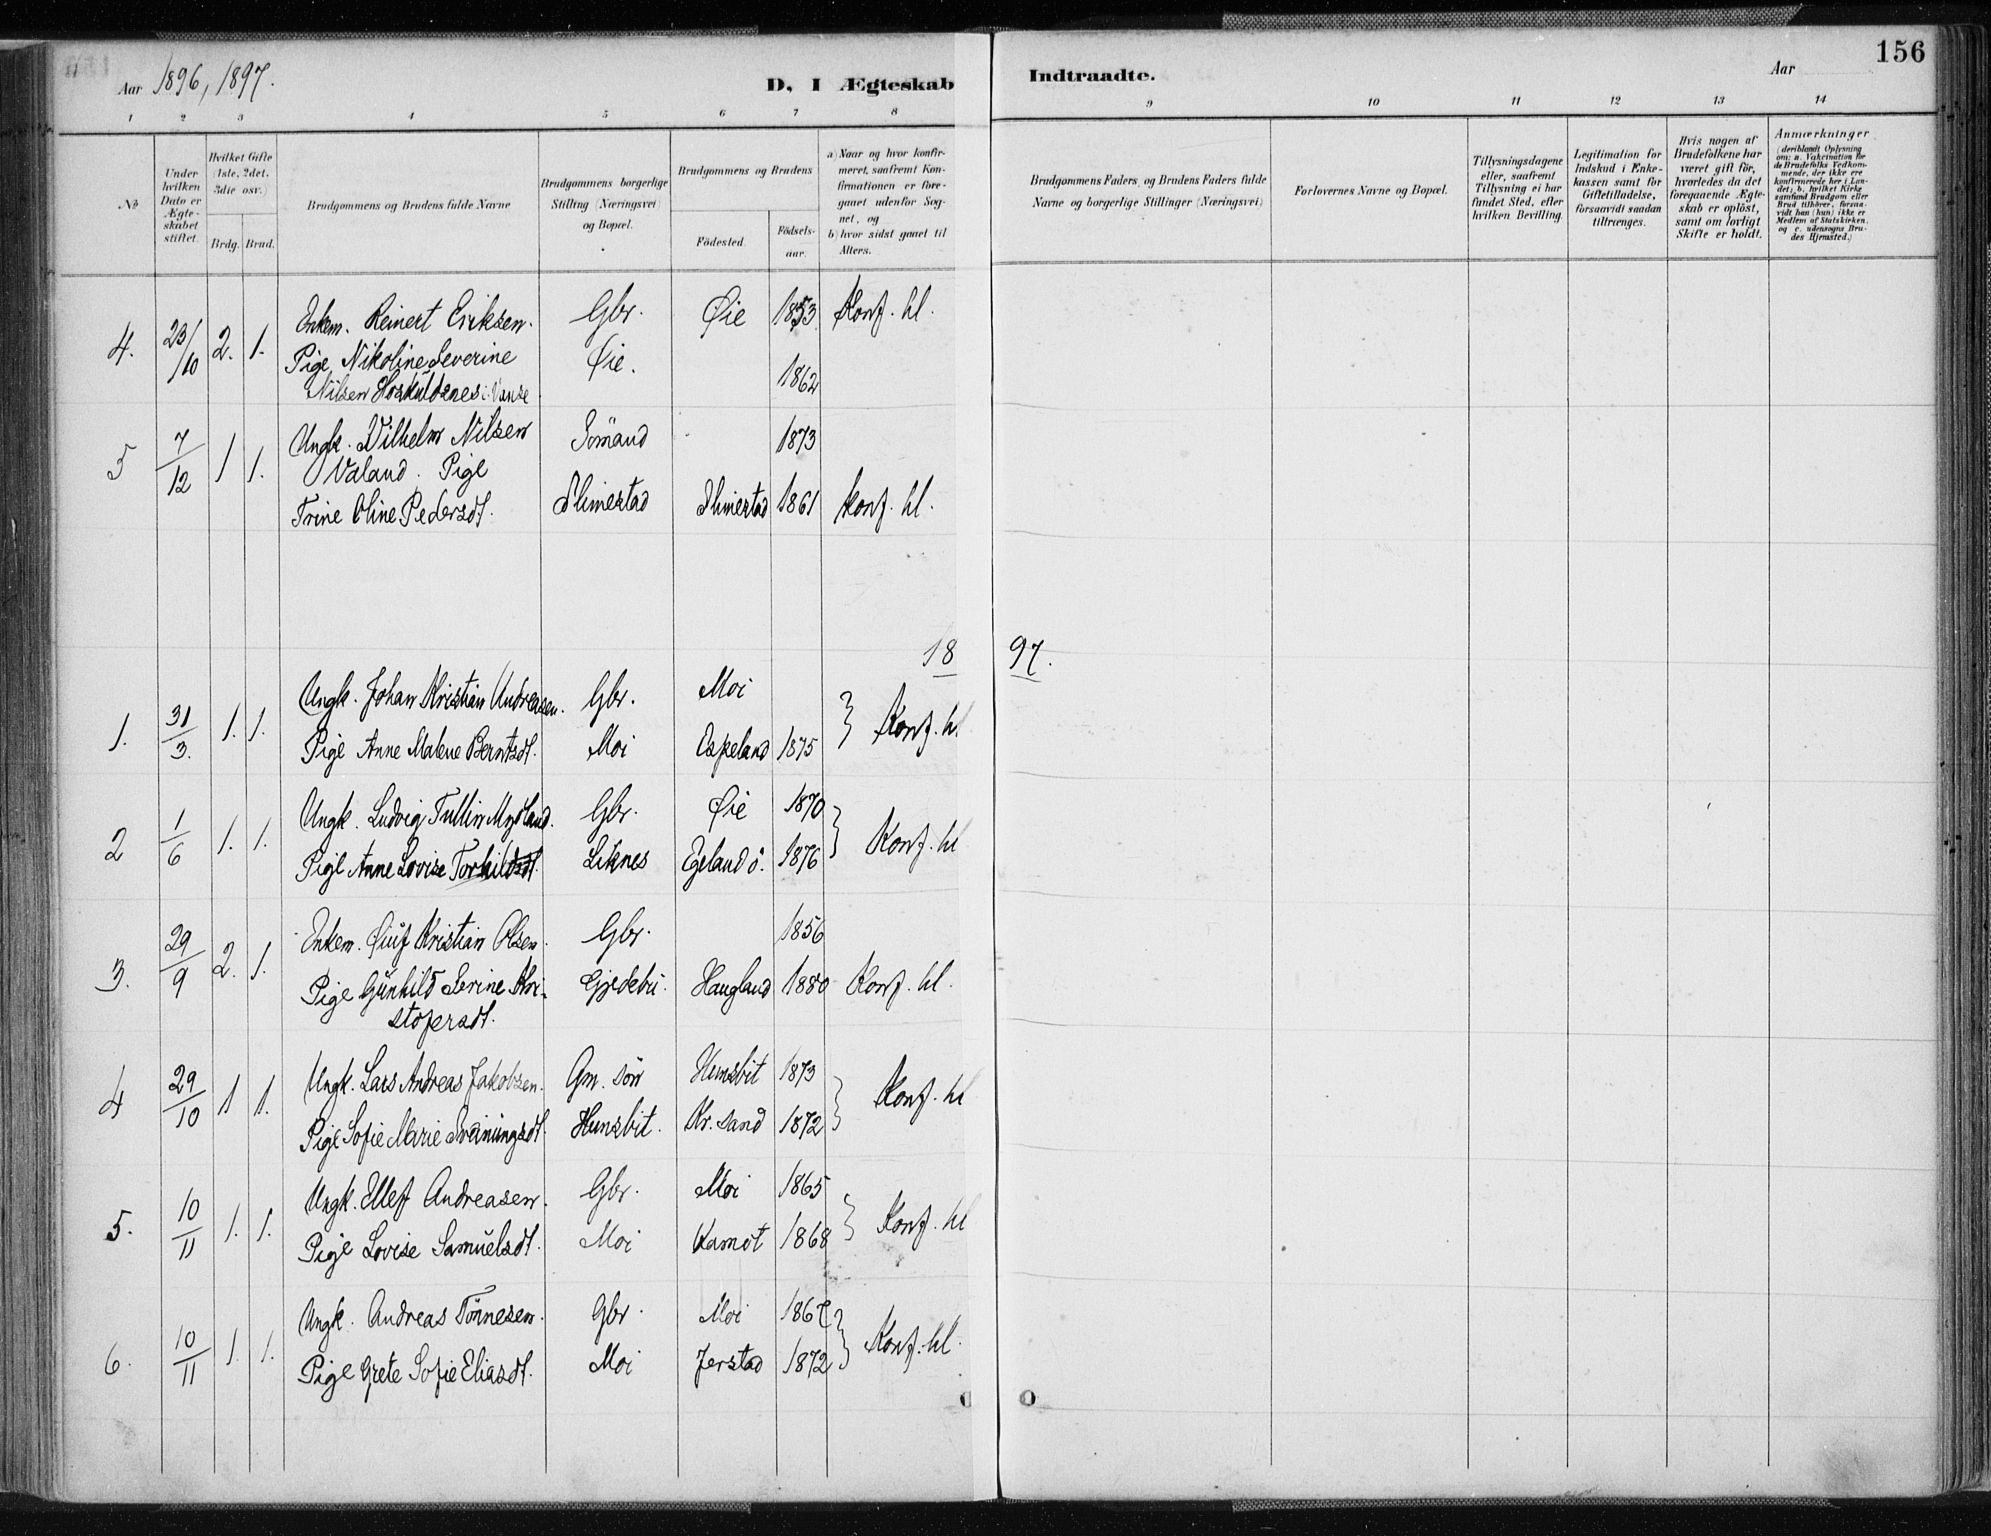 156
Aar 1896, 1897.
D. I Ægteskab Indtraadte.
Aar
1 2 3 4 5 6 7 8 9 10 11 12 13 14
No
Under hvilken Dato er Ægteskabet stiftet.
Hvilket Gifte (1ste, 2det, 3die osv.)
Brdg. Brud.
Brudgommens og Brudens fulde Navne
Brudgommens borgerlige Stilling (Næringsvei) og Bopæl.
Brudgommens og Brudens
Födested.
Födsels-aar.
a) Naar og hvor konfirmeret, saafremt Konfirmationen er foregaaet udenfor Sognet, og
b) hvor sidst gaaet til Alters.
Brudgommens Faders, og Brudens Faders fulde
Navne og borgerlige Stillinger (Næringsvei)
Forlovernes Navne og Bopæl.
Tillysningsdagene eller, saafremt Tillysning ei har fundet Sted, efter hvilken Bevilling.
Legitimation for Indskud i Enkekassen samt for Giftetilladelse, forsaavidt saadan tiltrænges.
Hvis nogen af Brudefolkene har været gift för, hvorledes da det foregaaende Ægteskab er oplöst, samt om lovligt Skifte er holdt.
Anmærkninger
(deriblandt Oplysning om: a. Vakcination for de Brudefolks Vedkommende, der ikke ere konfirmerede her i Landet; b. hvilket Kirkesamfund Brudgom eller Brud tilhörer, forsaavidt han (hun) ikke er Medlem af Statskirken, og c. udensogns Brudes Hjemsted.)
4. 23/10 2. 1. Enkem. Reinert Eriksen. Gbr. Øie 1853 Konf. hl.
Pige Nikoline Severine Øie. 1862
Nilsen i Vanse
5 7/12 1 1. Ungk. Vilhelm Nilsen Sömand 1873
Valand. Pige
Trine Oline Pedersdt. Slimestad Slimestad 1861 konf. hl.
1897.
1. 31/3. 1. 1. Ungk. Johan Kristian Andreasen. Gbr. Moi } Konf. hl
Pige Anne Malene Berntsdt. Moi Espeland 1875
2 1/6 1. 1. Ungk. Ludvig Tullin Mydland. Gbr. Øie 1870 } Konf. hl
Pige Anne Lovise Torkildsdt. Liknes Egeland ö. 1876
3. 29/9 2. 1. Enkem. Kristian Olsen. Gbr. 1856
Pige Gunhild Serine Kri- Gjedebu. Haugland 1880 Konf. hl.
stofersdt.
4 29/10 1 1. Ungk. Lars Andreas Jakobsen. Gm. sön Hunsbit 1873 } Konf. hl
Pige Sofie Marie Svänungsdt. Hunsbit. Kr.sand 1872
5. 10/11 1. 1. Ungk. Ellef Andreasen. Gbr. Moi 1865 } Konf. hl
Pige Lovise Samuelsdt. Moi 1868
6. 10/11 1. 1. Ungk. Andreas Tönnesen. Gbr. Moi 1867 } Konf. hl.
Pige Grete Sofie Eliasdt. Moi Jerstad 1872